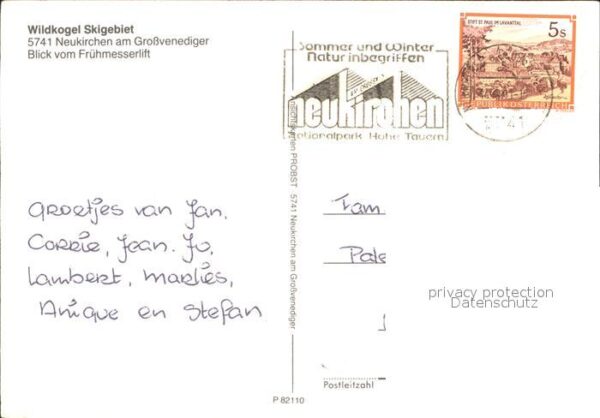 Wildkogel Skigebiet
5741 Neukirchen am Großvenediger
Blick vom Frühmesserlift
Sommer und Winter
Natur inbegriffen
neukirchen
Nationalpark Hohe Tauern
STIFT ST. PAUL IM LAVANTTAL
5s
REPUBLIK ÖSTERREICH
Ansichtskarten PROBST 5741 Neukirchen am Großvenediger
Groetjes van Jan,
Corrie, Jean. Jo,
Lambert, Marlies,
Anique en Stefan
Fam
Pale
privacy protection
Datenschutz
Postleitzahl
P 82110